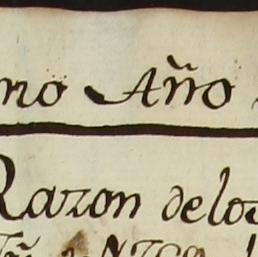 mo Año
Razon de los